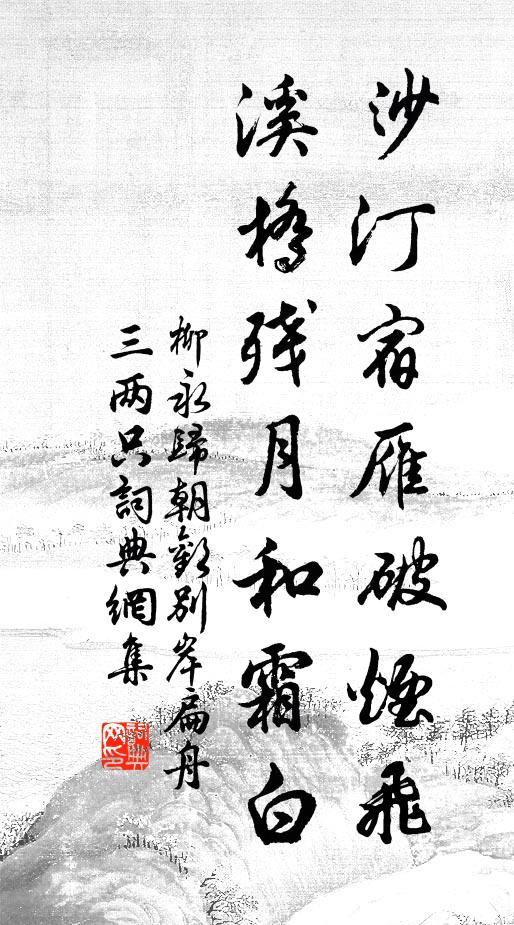 沙汀宿雁破煙飛
溪橋残月和霜白
柳永歸朝歡别岸扁舟
三两只詞典網集